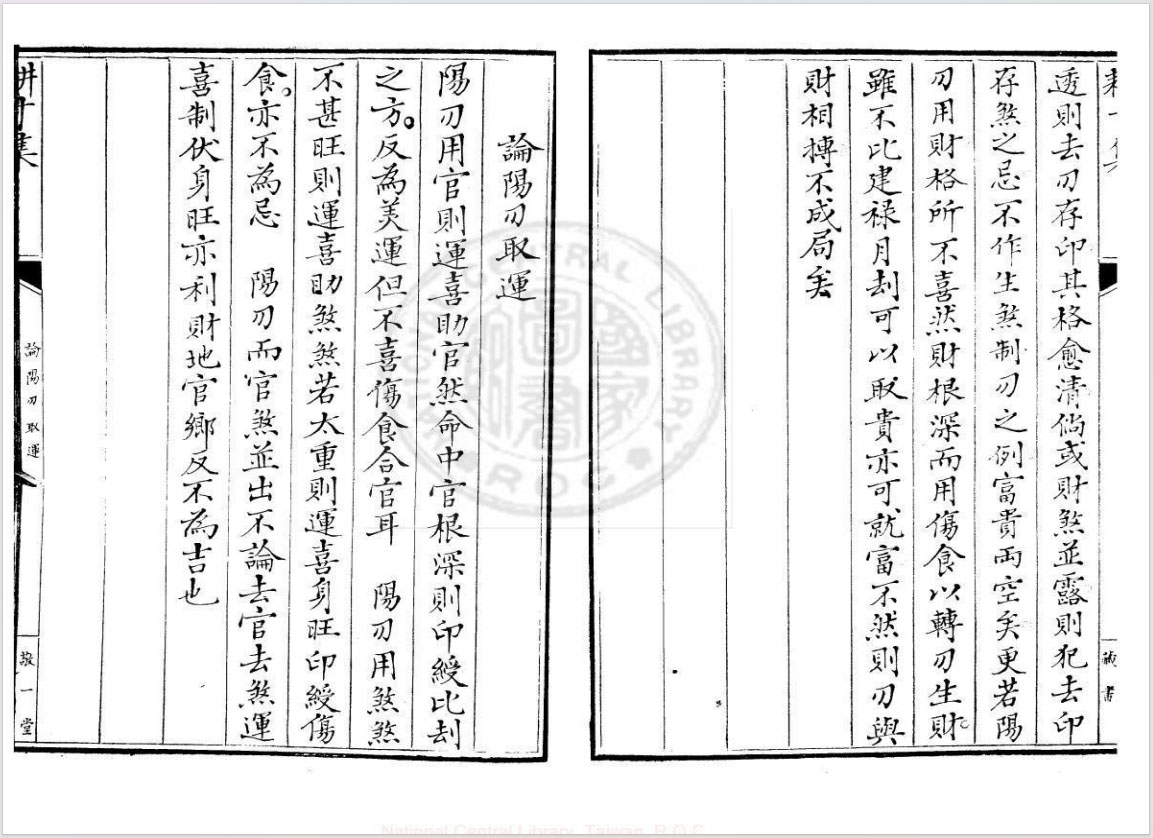 透則去刃存印其格愈清倘或財煞並露則犯去印
存煞之忌不作生煞制刃之例富貴両空矣更若陽
刃用財格所不喜然財根深而用傷食以轉刃生財
雖不比建禄月刦可以取貴亦可就富不然則刃與
財相摶不成局矣
論陽刃取運
陽刃用官則運喜助官然命中官根深則印綬比刦
之方。反為美運但不喜傷食合官耳　陽刃用煞煞
不甚旺則運喜助煞煞若太重則運喜身旺印綬傷
食。亦不為忌　陽刃而官煞並出不論去官去煞運
喜制伏身旺亦利財地官鄉反不為吉也
論陽刃取運
敬一堂
藏書
NATIONAL CENTRAL LIBRARY
R.O.C
National Central Library, Taiwan, R.O.C